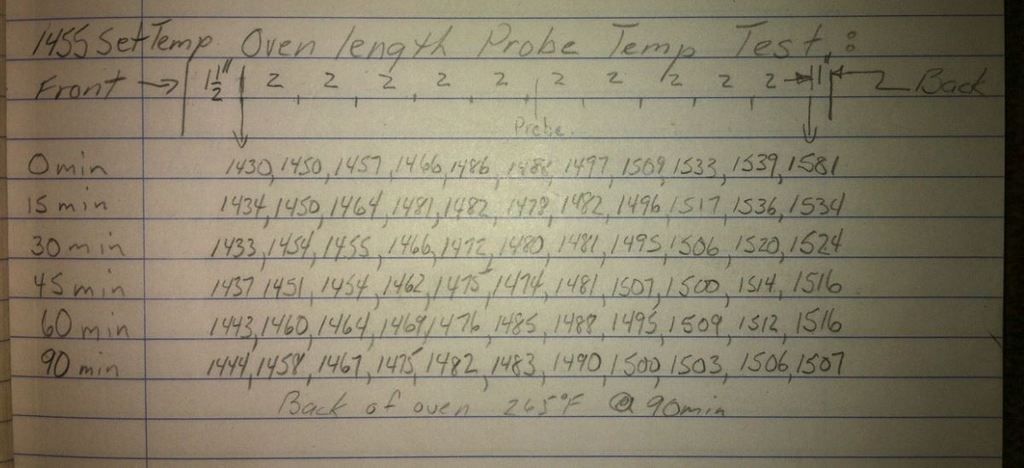 1455 Set Temp Oven length Probe Temp Test:
Front 1½" 2 2 2 2 2 2 2 2 2 2 1" Back
Probe
0 min 1430, 1450, 1457, 1466, 1486, 1488, 1497, 1509, 1533, 1539, 1581
15 min 1434, 1450, 1464, 1481, 1482, 1478, 1482, 1496, 1517, 1536, 1534
30 min 1433, 1454, 1455, 1466, 1472, 1480, 1481, 1495, 1506, 1520, 1524
45 min 1437 1451, 1454, 1462, 1475, 1474, 1481, 1507, 1500, 1514, 1516
60 min 1443, 1460, 1464, 1469, 1476, 1485, 1488, 1495, 1509, 1512, 1516
90 min 1444, 1458, 1467, 1475, 1482, 1483, 1490, 1500, 1503, 1506, 1507
Back of oven 265°F @ 90min